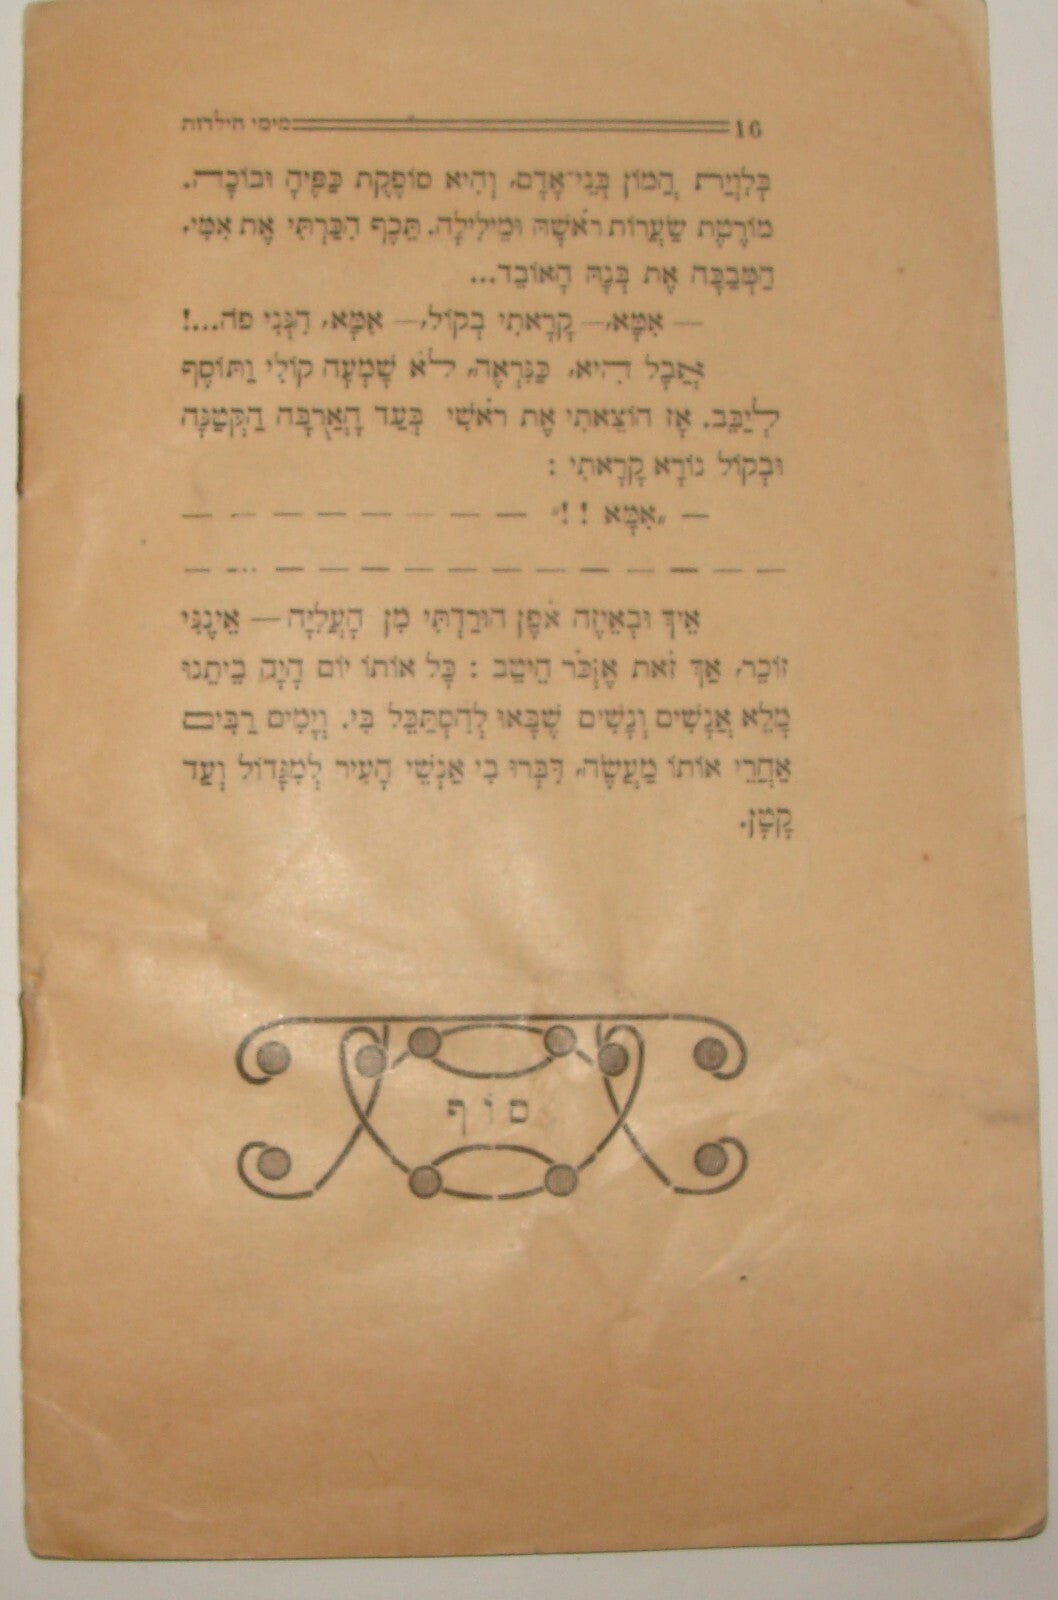 16 מימי הילדות
בְּלִוְיַת הֲמוֹן בְּנֵי־אָדָם, וְהִיא סוֹפֶקֶת כַּפֶּיהָ וּבוֹכָה.
מוֹרֶטֶת שַׂעֲרוֹת רֹאשָׁהּ וּמֵילִילָה. תֵּכֶף הִכַּרְתִּי אֶת אִמִּי,
הַמְּבַכָּה אֶת בְּנָהּ הָאוֹבֵד...
— אִמָּא,— קָרָאתִי בְקוֹל,— אִמָּא, הִנְּנִי פֹה...!
אֲבָל הִיא, כַּנִּרְאֶה, לֹא שָׁמְעָה קוֹלִי וַתּוֹסֶף
לְיַבֵּב. אָז הוֹצֵאתִי אֶת רֹאשִׁי בְּעַד הָאֲרֻבָּה הַקְּטַנָּה
וּבְקוֹל נוֹרָא קָרָאתִי :
— „אִמָּא ! !” — — — — — — — — —
— — — — — — — — — — — — — —
אֵיךְ וּבְאֵיזֶה אֹפֶן הוּרַדְתִּי מִן הָעֲלִיָּה — אֵינֶנִּי
זוֹכֵר, אַךְ זֹאת אֶזְכֹּר הֵיטֵב : כָּל אוֹתוֹ יוֹם הָיָה בֵיתֵנוּ
מָלֵא אֲנָשִׁים וְנָשִׁים שֶׁבָּאוּ לְהִסְתַּכֵּל בִּי. וְיָמִים רַבִּים
אַחֲרֵי אוֹתוֹ מַעֲשֶׂה, דִּבְּרוּ בִי אַנְשֵׁי הָעִיר לְמִגָּדוֹל וְעַד
קָטָן.
סוֹף